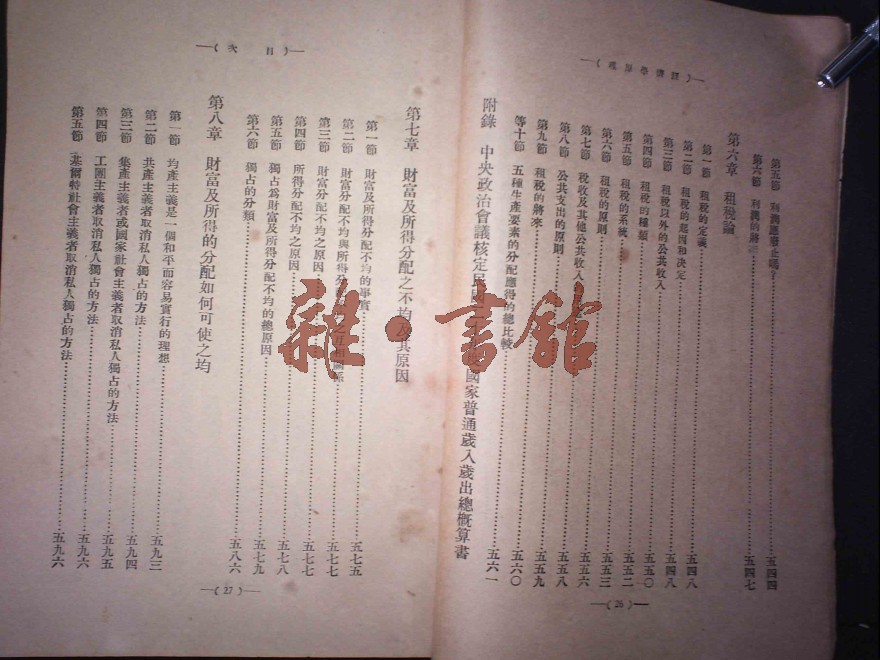 —(經濟學原理)—
第五節 利潤應廢止嗎？……五四四
第六節 利潤的將……五四七
第六章 租稅論
第一節 租稅的定義……五四八
第二節 租稅的起因和決定……五四八
第三節 租稅以外的公共收入……五四八
第四節 租稅的種類……五五〇
第五節 租稅的系統……五五二
第六節 租稅的原則……五五三
第七節 稅收及其他公共收入……五五六
第八節 公共支出的原則……五五八
第九節 租稅的將來……五五九
等十節 五種生產要素的分配應得的總比較……五六〇
附錄 中央政治會議核定民國 國家普通歲入歲出總概算書……五六一
—(26)—
—(目次)—
第七章 財富及所得分配之不均及其原因
第一節 財富及所得分配不均的事實……五七五
第二節 財富分配不均與所得分 之互相關係……五七七
第三節 財富分配不均之原因……五七七
第四節 所得分配不均之原因……五七八
第五節 獨占為財富及所得分配不均的總原因……五七九
第六節 獨占的分類……五八六
第八章 財富及所得的分配如何可使之均
第一節 均產主義是一個和平而容易實行的理想……五九三
第二節 共產主義者取消私人獨占的方法……五九四
第三節 集產主義者或國家社會主義者取消私人獨占的方法……五九五
第四節 工團主義者取消私人獨占的方法……五九六
第五節 基爾特社會主義者取消私人獨占的方法……五九六
—(27)—
雜·書館